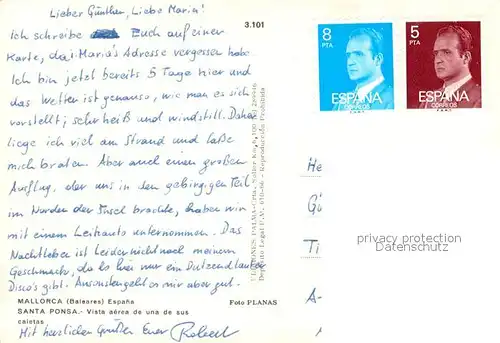 Lieber Günther, Liebe Maria!
3.101
Ich schreibe Euch auf einer
Karte, da i Maria's Adresse vergessen habe
Ich bin jetzt bereits 5 Tage hier und
das Wetter ist genauso, wie man es sich
vorstellt; sehr heiß und windstill. Daher
liege ich viel am Strand und laße
mich braten. Aber auch einen großen
Ausflug, der uns in den gebirgigen Teil
im Norden der Insel brachte, haben wir
mit einem Leihauto unternommen. Das
Nachtleben ist leider nicht nach meinem
Geschmack, da es hier nur ein Dutzend lauter
Disco's gibt. Ansonsten geht es mir aber gut.
MALLORCA (Baleares) España
Foto PLANAS
SANTA PONSA.- Vista aérea de una de sus
caletas
Mit herzlichen Grüßen Euer Robert
8 PTA
ESPAÑA
CORREOS
5 PTA
ESPAÑA
CORREOS
He
Gü
Ti
A-
privacy protection
watermark